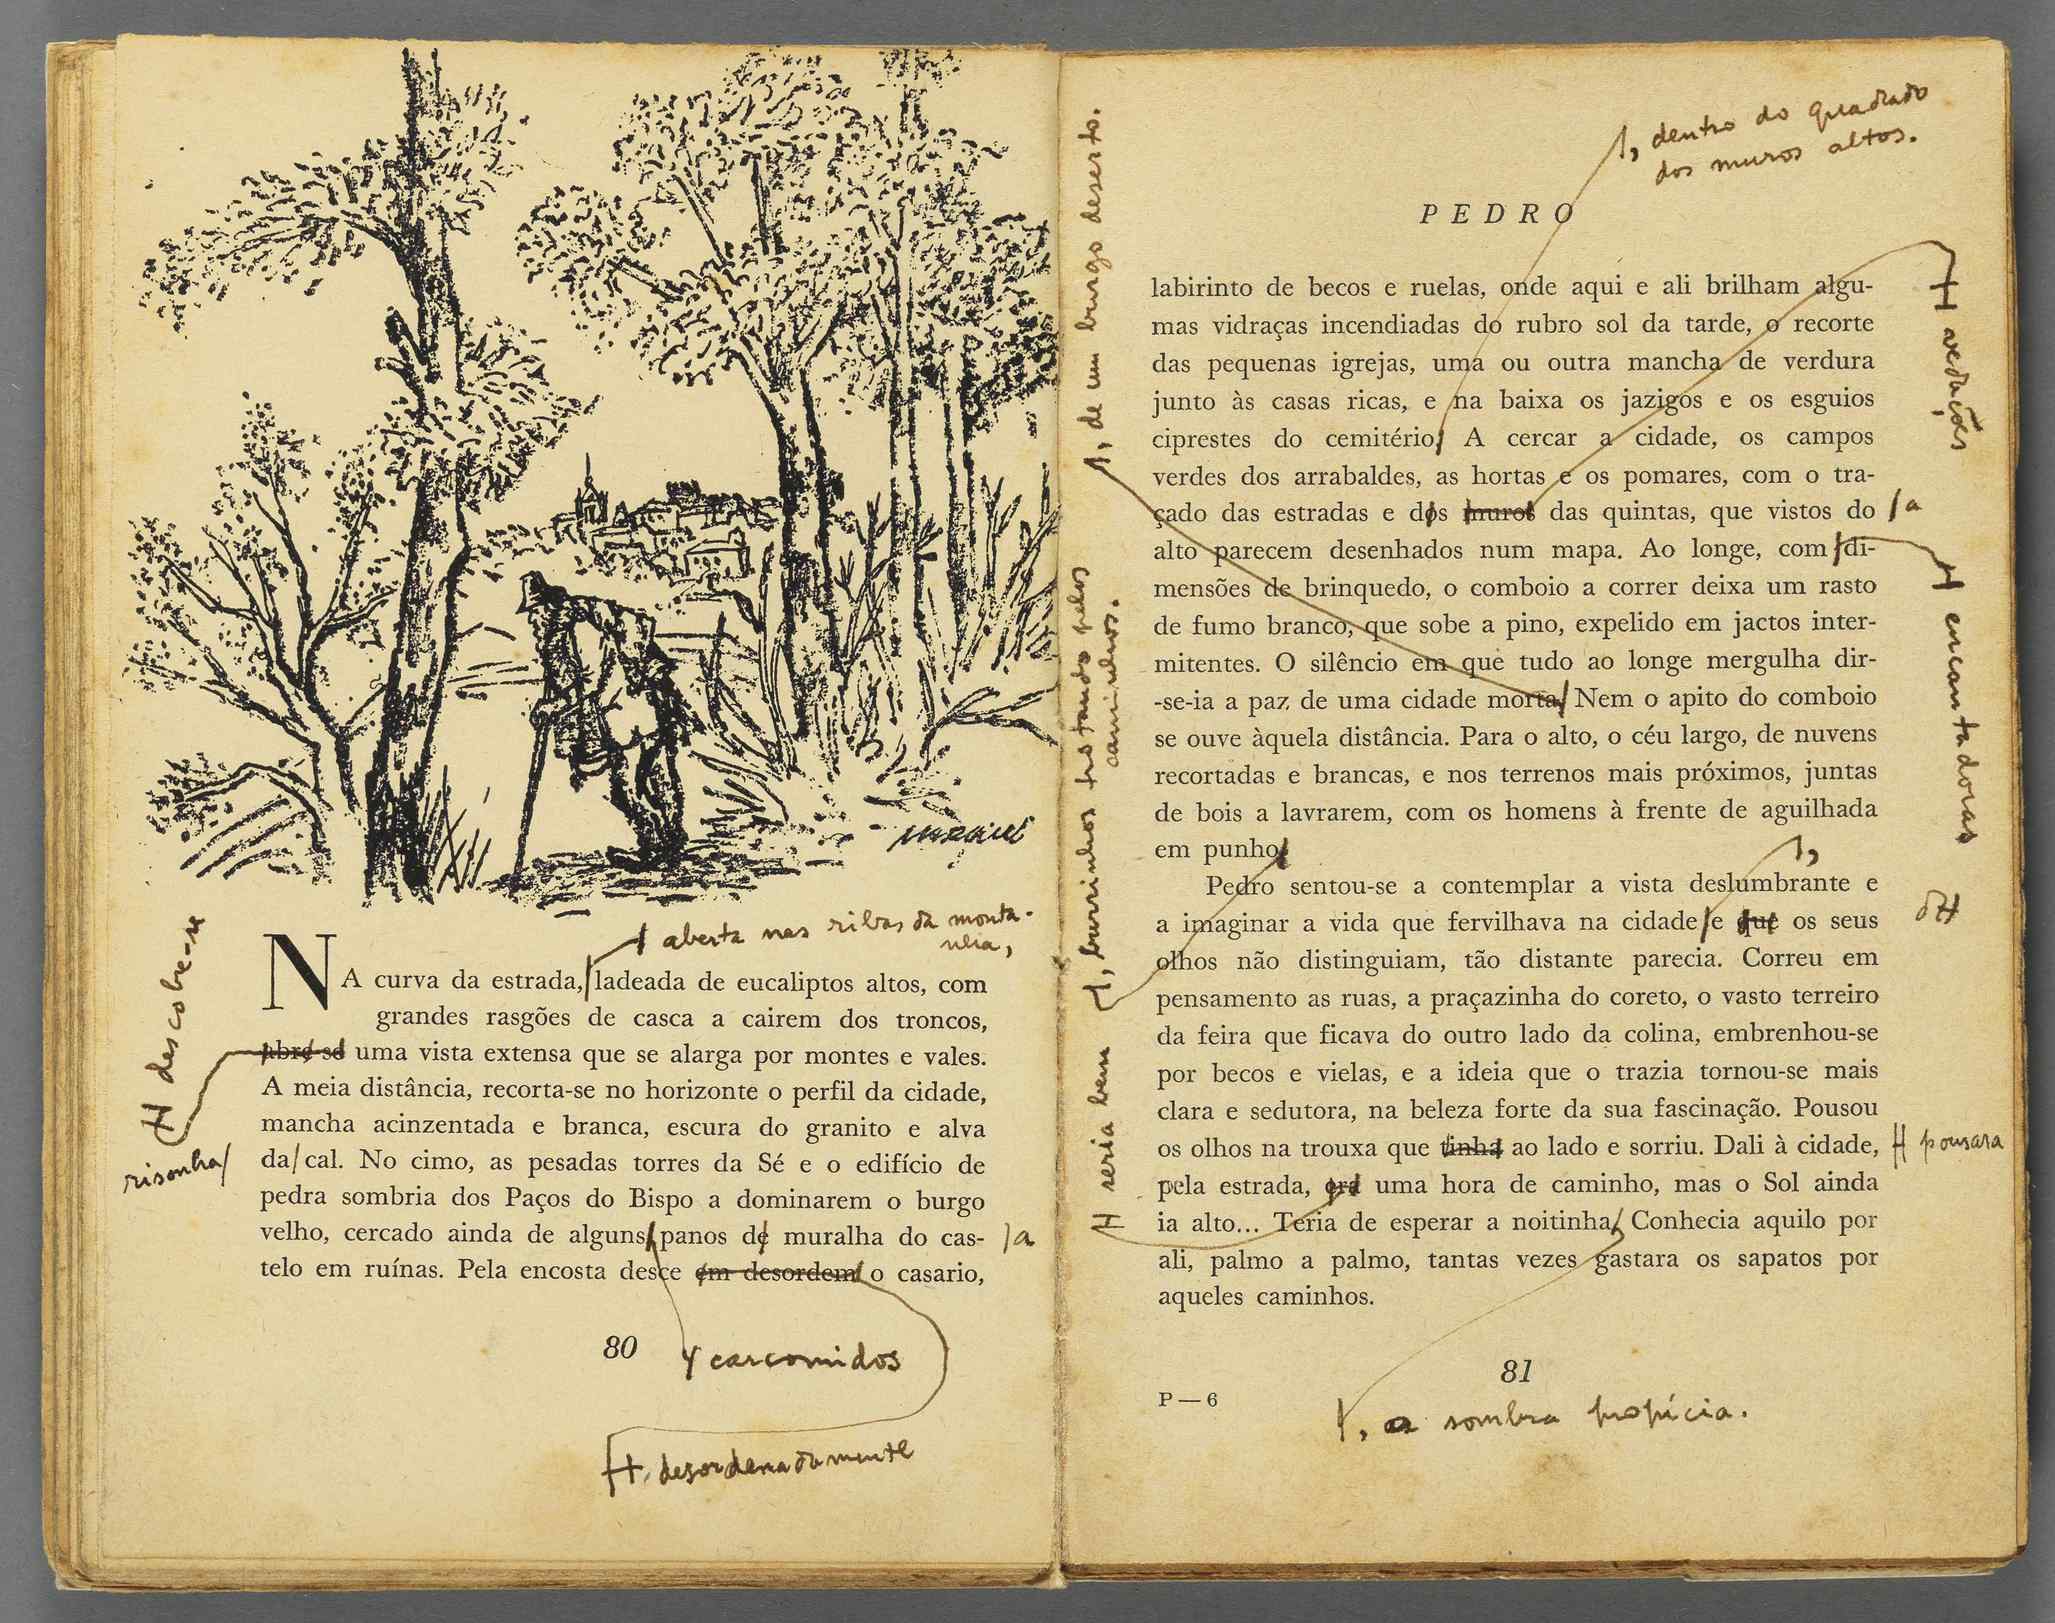 maciel
aberta nas ribas da monta-
nha,
NA curva da estrada, ladeada de eucaliptos altos, com
grandes rasgões de casca a cairem dos troncos,
abre-se uma vista extensa que se alarga por montes e vales.
A meia distância, recorta-se no horizonte o perfil da cidade,
mancha acinzentada e branca, escura do granito e alva
da cal. No cimo, as pesadas torres da Sé e o edifício de
pedra sombria dos Paços do Bispo a dominarem o burgo
velho, cercado ainda de alguns panos de muralha do cas-
telo em ruínas. Pela encosta desce em desordem o casario,
descobre-se
risonha
a
80
carcomidos
desordenadamente
, dentro do quadrado
dos muros altos.
PEDRO
labirinto de becos e ruelas, onde aqui e ali brilham algu-
mas vidraças incendiadas do rubro sol da tarde, o recorte
das pequenas igrejas, uma ou outra mancha de verdura
junto às casas ricas, e na baixa os jazigos e os esguios
ciprestes do cemitério. A cercar a cidade, os campos
verdes dos arrabaldes, as hortas e os pomares, com o tra-
çado das estradas e dos muros das quintas, que vistos do
alto parecem desenhados num mapa. Ao longe, com di-
mensões de brinquedo, o comboio a correr deixa um rasto
de fumo branco, que sobe a pino, expelido em jactos inter-
mitentes. O silêncio em que tudo ao longe mergulha dir-
-se-ia a paz de uma cidade morta. Nem o apito do comboio
se ouve àquela distância. Para o alto, o céu largo, de nuvens
recortadas e brancas, e nos terrenos mais próximos, juntas
de bois a lavrarem, com os homens à frente de aguilhada
em punho.
Pedro sentou-se a contemplar a vista deslumbrante e
a imaginar a vida que fervilhava na cidade e que os seus
olhos não distinguiam, tão distante parecia. Correu em
pensamento as ruas, a praçazinha do coreto, o vasto terreiro
da feira que ficava do outro lado da colina, embrenhou-se
por becos e vielas, e a ideia que o trazia tornou-se mais
clara e sedutora, na beleza forte da sua fascinação. Pousou
os olhos na trouxa que tinha ao lado e sorriu. Dali à cidade,
pela estrada, era uma hora de caminho, mas o Sol ainda
ia alto... Teria de esperar a noitinha. Conhecia aquilo por
ali, palmo a palmo, tantas vezes gastara os sapatos por
aqueles caminhos.
, de um burgo deserto.
, burrinhos trotando pelos
caminhos.
seria bem
vedações
a
encantadoras
,
pousara
81
P — 6
, a sombra propícia.